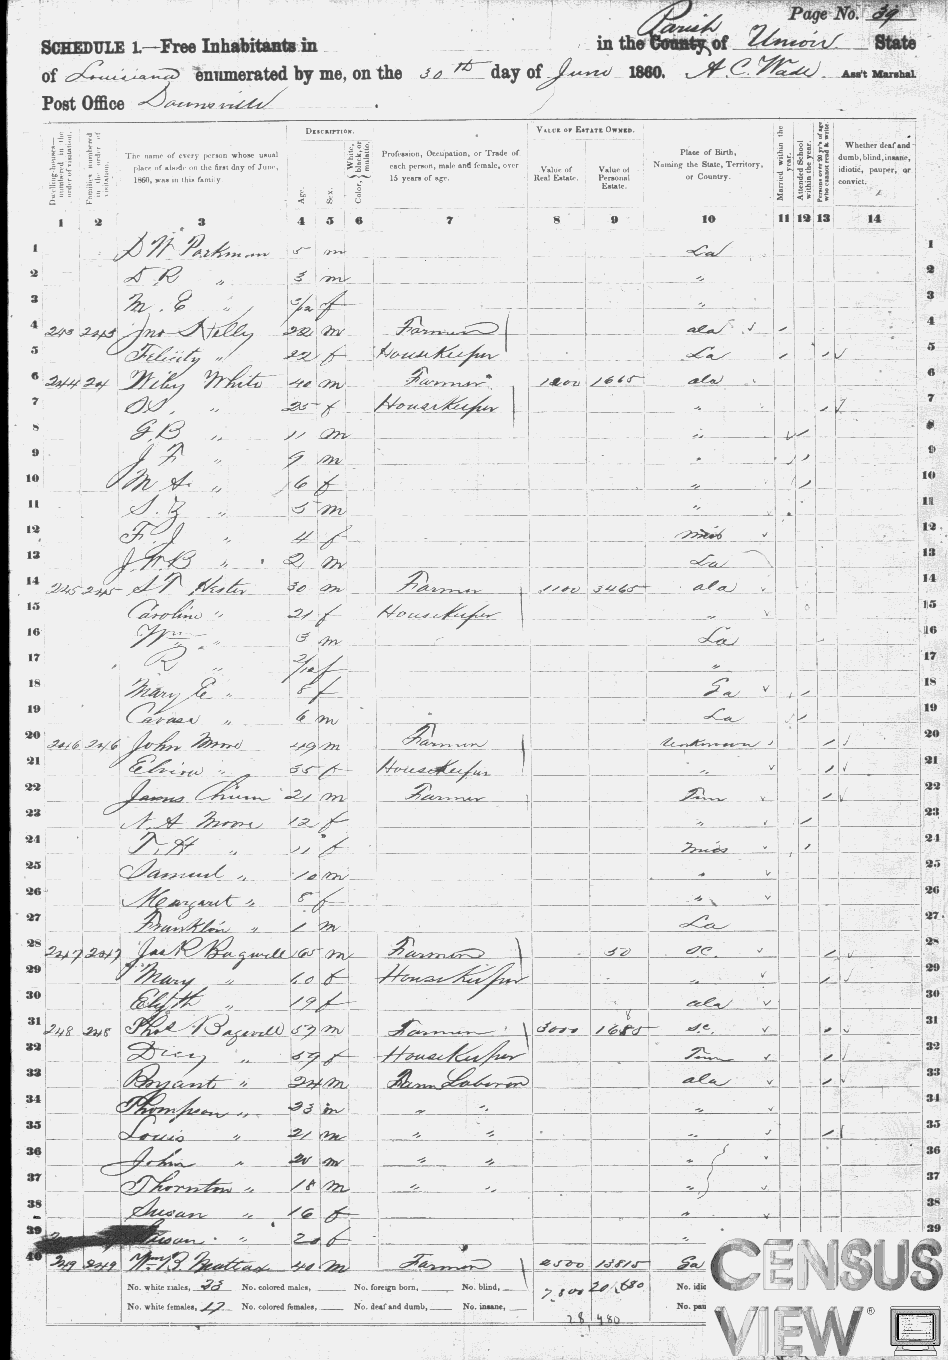 Page No. 39
SCHEDULE 1.—Free Inhabitants in in the County Parish of Union State
of Louisiana enumerated by me, on the 30th day of June 1860. A. C. Wade Ass't Marshal
Post Office Downsville
Dwelling-houses—numbered in the order of visitation. Families numbered in the order of visitation. The name of every person whose usual place of abode on the first day of June, 1860, was in this family DESCRIPTION. Age. Sex. Color, White, black, or mulatto. Profession, Occupation, or Trade of each person, male and female, over 15 years of age. VALUE OF ESTATE OWNED. Value of Real Estate. Value of Personal Estate. Place of Birth, Naming the State, Territory, or Country. Married within the year. Attended School within the year. Persons over 20 y'rs of age who cannot read & write. Whether deaf and dumb, blind, insane, idiotic, pauper, or convict.
1 2 3 4 5 6 7 8 9 10 11 12 13 14
1 D W Parkman 5 m La 1
2 D R " 3 m " 2
3 M. E " /12 f " 3
4 243 243 Jno Kelly 22 m Farmer ala / 4
5 Felicity " 22 f HouseKeeper La / / 5
6 244 24 Wiley White 40 m Farmer 1200 1665 ala 6
7 " 25 f HouseKeeper " / 7
8 G. B " 11 m " / 8
9 J F " 9 m " / 9
10 M A. " 6 f " / 10
11 S. Z " 5 m " 11
12 F. J " 4 f miss 12
13 J. W. B " 2 m La 13
14 245 245 S T Hester 30 m Farmer 1100 3465 ala 14
15 Caroline " 21 f HouseKeeper " 15
16 Wm " 3 m La 16
17 R " /12 f " 17
18 Mary E " 8 f Ga / 18
19 " 6 m La / 19
20 246 246 John Moore 49 m Farmer unknown / 20
21 " 35 f HouseKeeper " / 21
22 James 21 m Farmer Tenn / 22
23 N. A Moore 12 f " / 23
24 T. H " 11 f miss / 24
25 Samuel " 10 m " 25
26 Margaret " 8 f " 26
27 Franklin " 1 m La 27
28 247 247 Jas R Bagwell 65 m Farmer 50 SC. / 28
29 Mary " 60 f HouseKeeper " / 29
30 " 19 f ala 30
31 248 248 Thos Bagwell 57 m Farmer 3000 1685 S.C. / 31
32 Dicy " 59 f HouseKeeper Tenn / 32
33 Bryant " 24 m Farm Laborer ala / 33
34 Thompson " 23 m " " " 34
35 Louis " 21 m " " " / 35
36 John " 20 m " " " 36
37 Thornton " 18 m " " " 37
38 Susan " 16 f " 38
39 " 20 f " 39
40 249 249 40 m Farmer 2500 13815 Ga
No. white males, 23 No. colored males, No. foreign born, No. blind, 7,800 20,680 No. idio
No. white females, 17 No. colored females, No. deaf and dumb, No. insane, No. pau
28,480
CENSUS
VIEW®